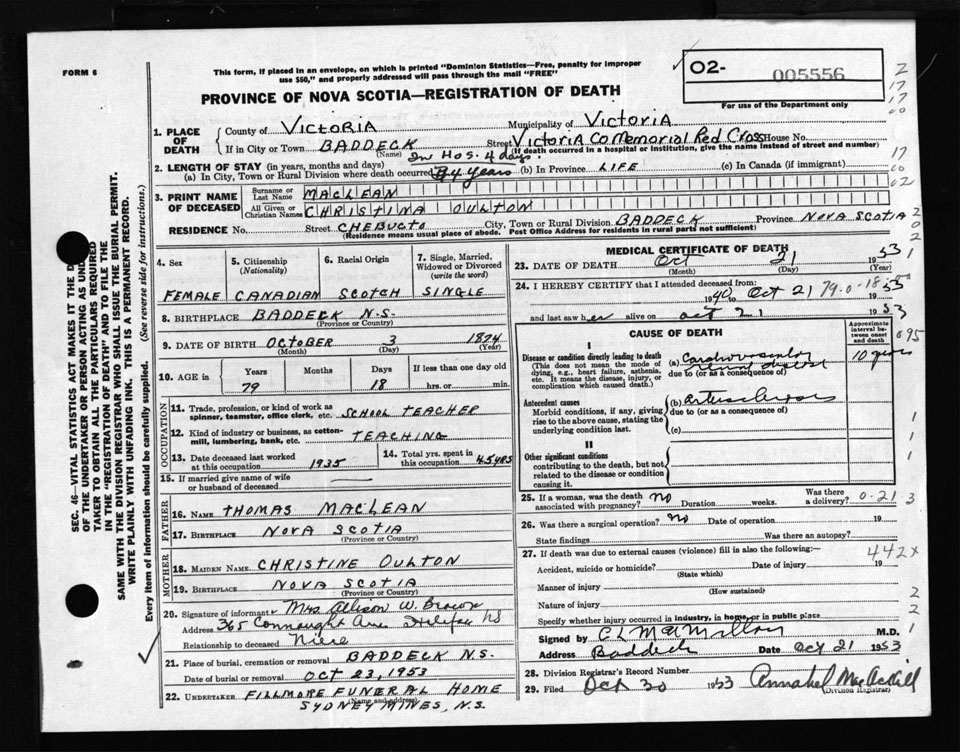 FORM 6
This form, if placed in an envelope, on which is printed "Dominion Statistics—Free, penalty for improper
use $50," and properly addressed will pass through the mail "FREE"
O2-
005556
For use of the Department only
PROVINCE OF NOVA SCOTIA—REGISTRATION OF DEATH
1. PLACE OF DEATH
County of VICTORIA Municipality of VICTORIA
If in City or Town BADDECK Street Victoria Co Memorial Red Cross House No.
(Name) In Hos. 4 days. (If death occurred in a hospital or institution, give the name instead of street and number)
2. LENGTH OF STAY (in years, months and days)
(a) In City, Town or Rural Division where death occurred years (b) In Province LIFE (c) In Canada (if immigrant)
3. PRINT NAME OF DECEASED
Surname or Last Name MACLEAN
All Given or Christian Names CHRISTINA OULTON
RESIDENCE No. Street CHEBUCTO City, Town or Rural Division BADDECK Province NOVA SCOTIA
(Residence means usual place of abode. Post Office Address for residents in rural parts not sufficient)
4. Sex 5. Citizenship (Nationality) 6. Racial Origin 7. Single, Married, Widowed or Divorced (write the word)
FEMALE CANADIAN SCOTCH SINGLE
8. BIRTHPLACE BADDECK N.S.
(Province or Country)
9. DATE OF BIRTH OCTOBER 3 1874
(Month) (Day) (Year)
10. AGE in Years Months Days If less than one day old
79 18 hrs. or min.
OCCUPATION
11. Trade, profession, or kind of work as spinner, teamster, office clerk, etc. SCHOOL TEACHER
12. Kind of industry or business, as cotton-mill, lumbering, bank, etc. TEACHING
13. Date deceased last worked at this occupation 1935 14. Total yrs. spent in this occupation 45 yrs
15. If married give name of wife or husband of deceased
FATHER
16. NAME THOMAS MACLEAN
17. BIRTHPLACE NOVA SCOTIA
(Province or Country)
MOTHER
18. MAIDEN NAME CHRISTINE OULTON
19. BIRTHPLACE NOVA SCOTIA
(Province or Country)
20. Signature of informant Mrs Allison W. Brown
Address 365 Connaught Ave Halifax NS
Relationship to deceased Niece
21. Place of burial, cremation or removal BADDECK N.S.
Date of burial or removal OCT 23, 1953
22. UNDERTAKER FILLMORE FUNERAL HOME
(Name and address)
SYDNEY MINES, N.S.
MEDICAL CERTIFICATE OF DEATH
23. DATE OF DEATH Oct 21 1953
(Month) (Day) (Year)
24. I HEREBY CERTIFY that I attended deceased from:
1940 to Oct 21 79-0-18 1953
and last saw her alive on Oct 21 1953
CAUSE OF DEATH
Approximate interval between onset and death
I
Disease or condition directly leading to death
(This does not mean the mode of dying, e.g., heart failure, asthenia, etc. It means the disease, injury, or complication which caused death.)
(a) Cardiovascular renal disease 10 years
due to (or as a consequence of)
Antecedent causes
Morbid conditions, if any, giving rise to the above cause, stating the underlying condition last.
(b) arteriosclerosis
due to (or as a consequence of)
(c)
II
Other significant conditions
contributing to the death, but not related to the disease or condition causing it.
25. If a woman, was the death associated with pregnancy? no Duration weeks. Was there a delivery? 0-21
26. Was there a surgical operation? no Date of operation 19
State findings Was there an autopsy?
27. If death was due to external causes (violence) fill in also the following:— 442x
Accident, suicide or homicide? Date of injury 19
(State which)
Manner of injury
(How sustained)
Nature of injury
Specify whether injury occurred in industry, in home, or in public place
Signed by C L MacMillan M.D.
Address Baddeck Date Oct 21 1953
28. Division Registrar's Record Number
29. Filed Oct 30 1953 Annabel MacAskill
(Division Registrar)
SEC. 46—VITAL STATISTICS ACT MAKES IT THE D
OF THE UNDERTAKER OR PERSON ACTING AS UND
TAKER TO OBTAIN ALL THE PARTICULARS REQUIRED
IN THE "REGISTRATION OF DEATH" AND TO FILE THE
SAME WITH THE DIVISION REGISTRAR WHO SHALL ISSUE THE BURIAL PERMIT.
WRITE PLAINLY WITH UNFADING INK. THIS IS A PERMANENT RECORD.
Every item of information should be carefully supplied. (See reverse side for instructions.)
2
17
17
00
17
00
02
2
0
2
1
095
1
1
1
3
2
2
1